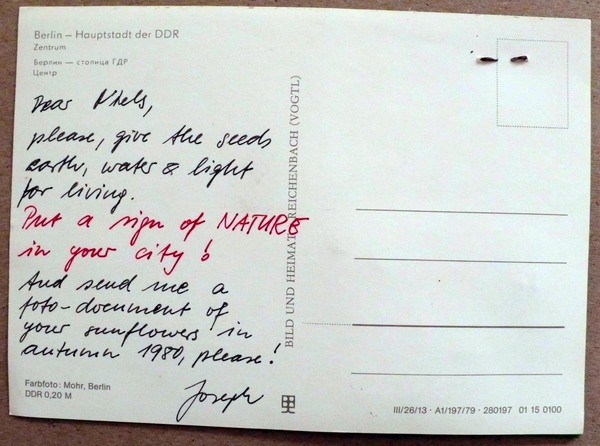 Berlin – Hauptstadt der DDR
Zentrum
Берлин — столица ГДР
Центр
Dear Niels,
please, give the seeds
earth, water & light
for living.
Put a sign of NATURE
in your city!
And send me a
foto-document of
your sunflowers in
autumn 1980, please!
Joseph
Farbfoto: Mohr, Berlin
DDR 0,20 M
BILD UND HEIMAT REICHENBACH (VOGTL)
III/26/13 · A1/197/79 · 280197 01 15 0100